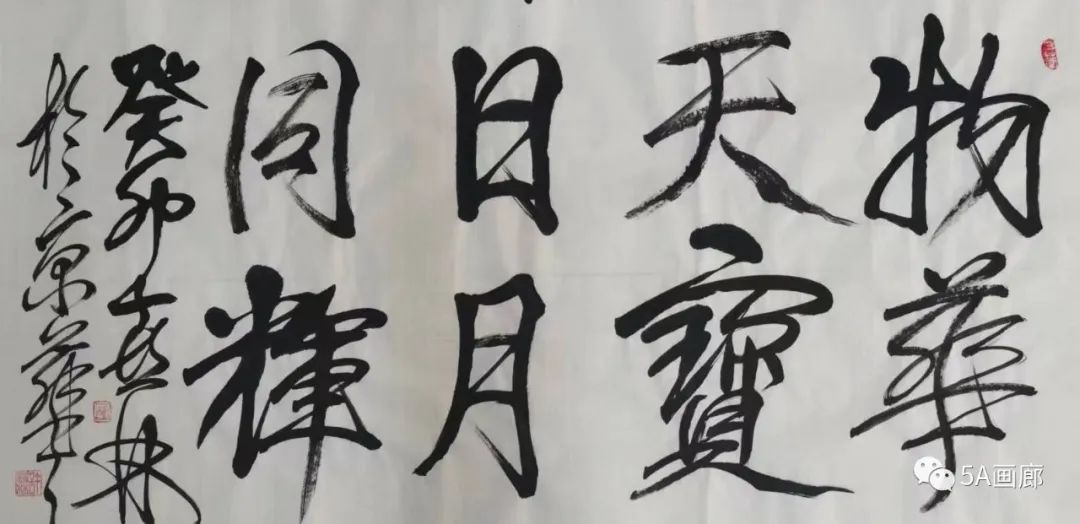 物華
天寶
日月
同輝
癸卯
於京華
5A画廊